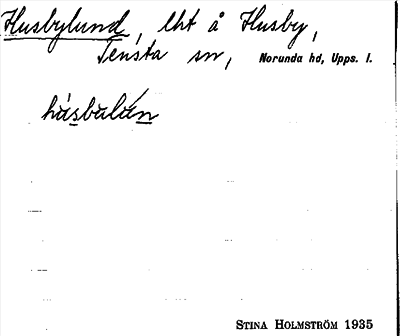 Husbylund, lht å Husby,
Tensta sn, Norunda hd, Upps. l.
hùsbalán
STINA HOLMSTRÖM 1935